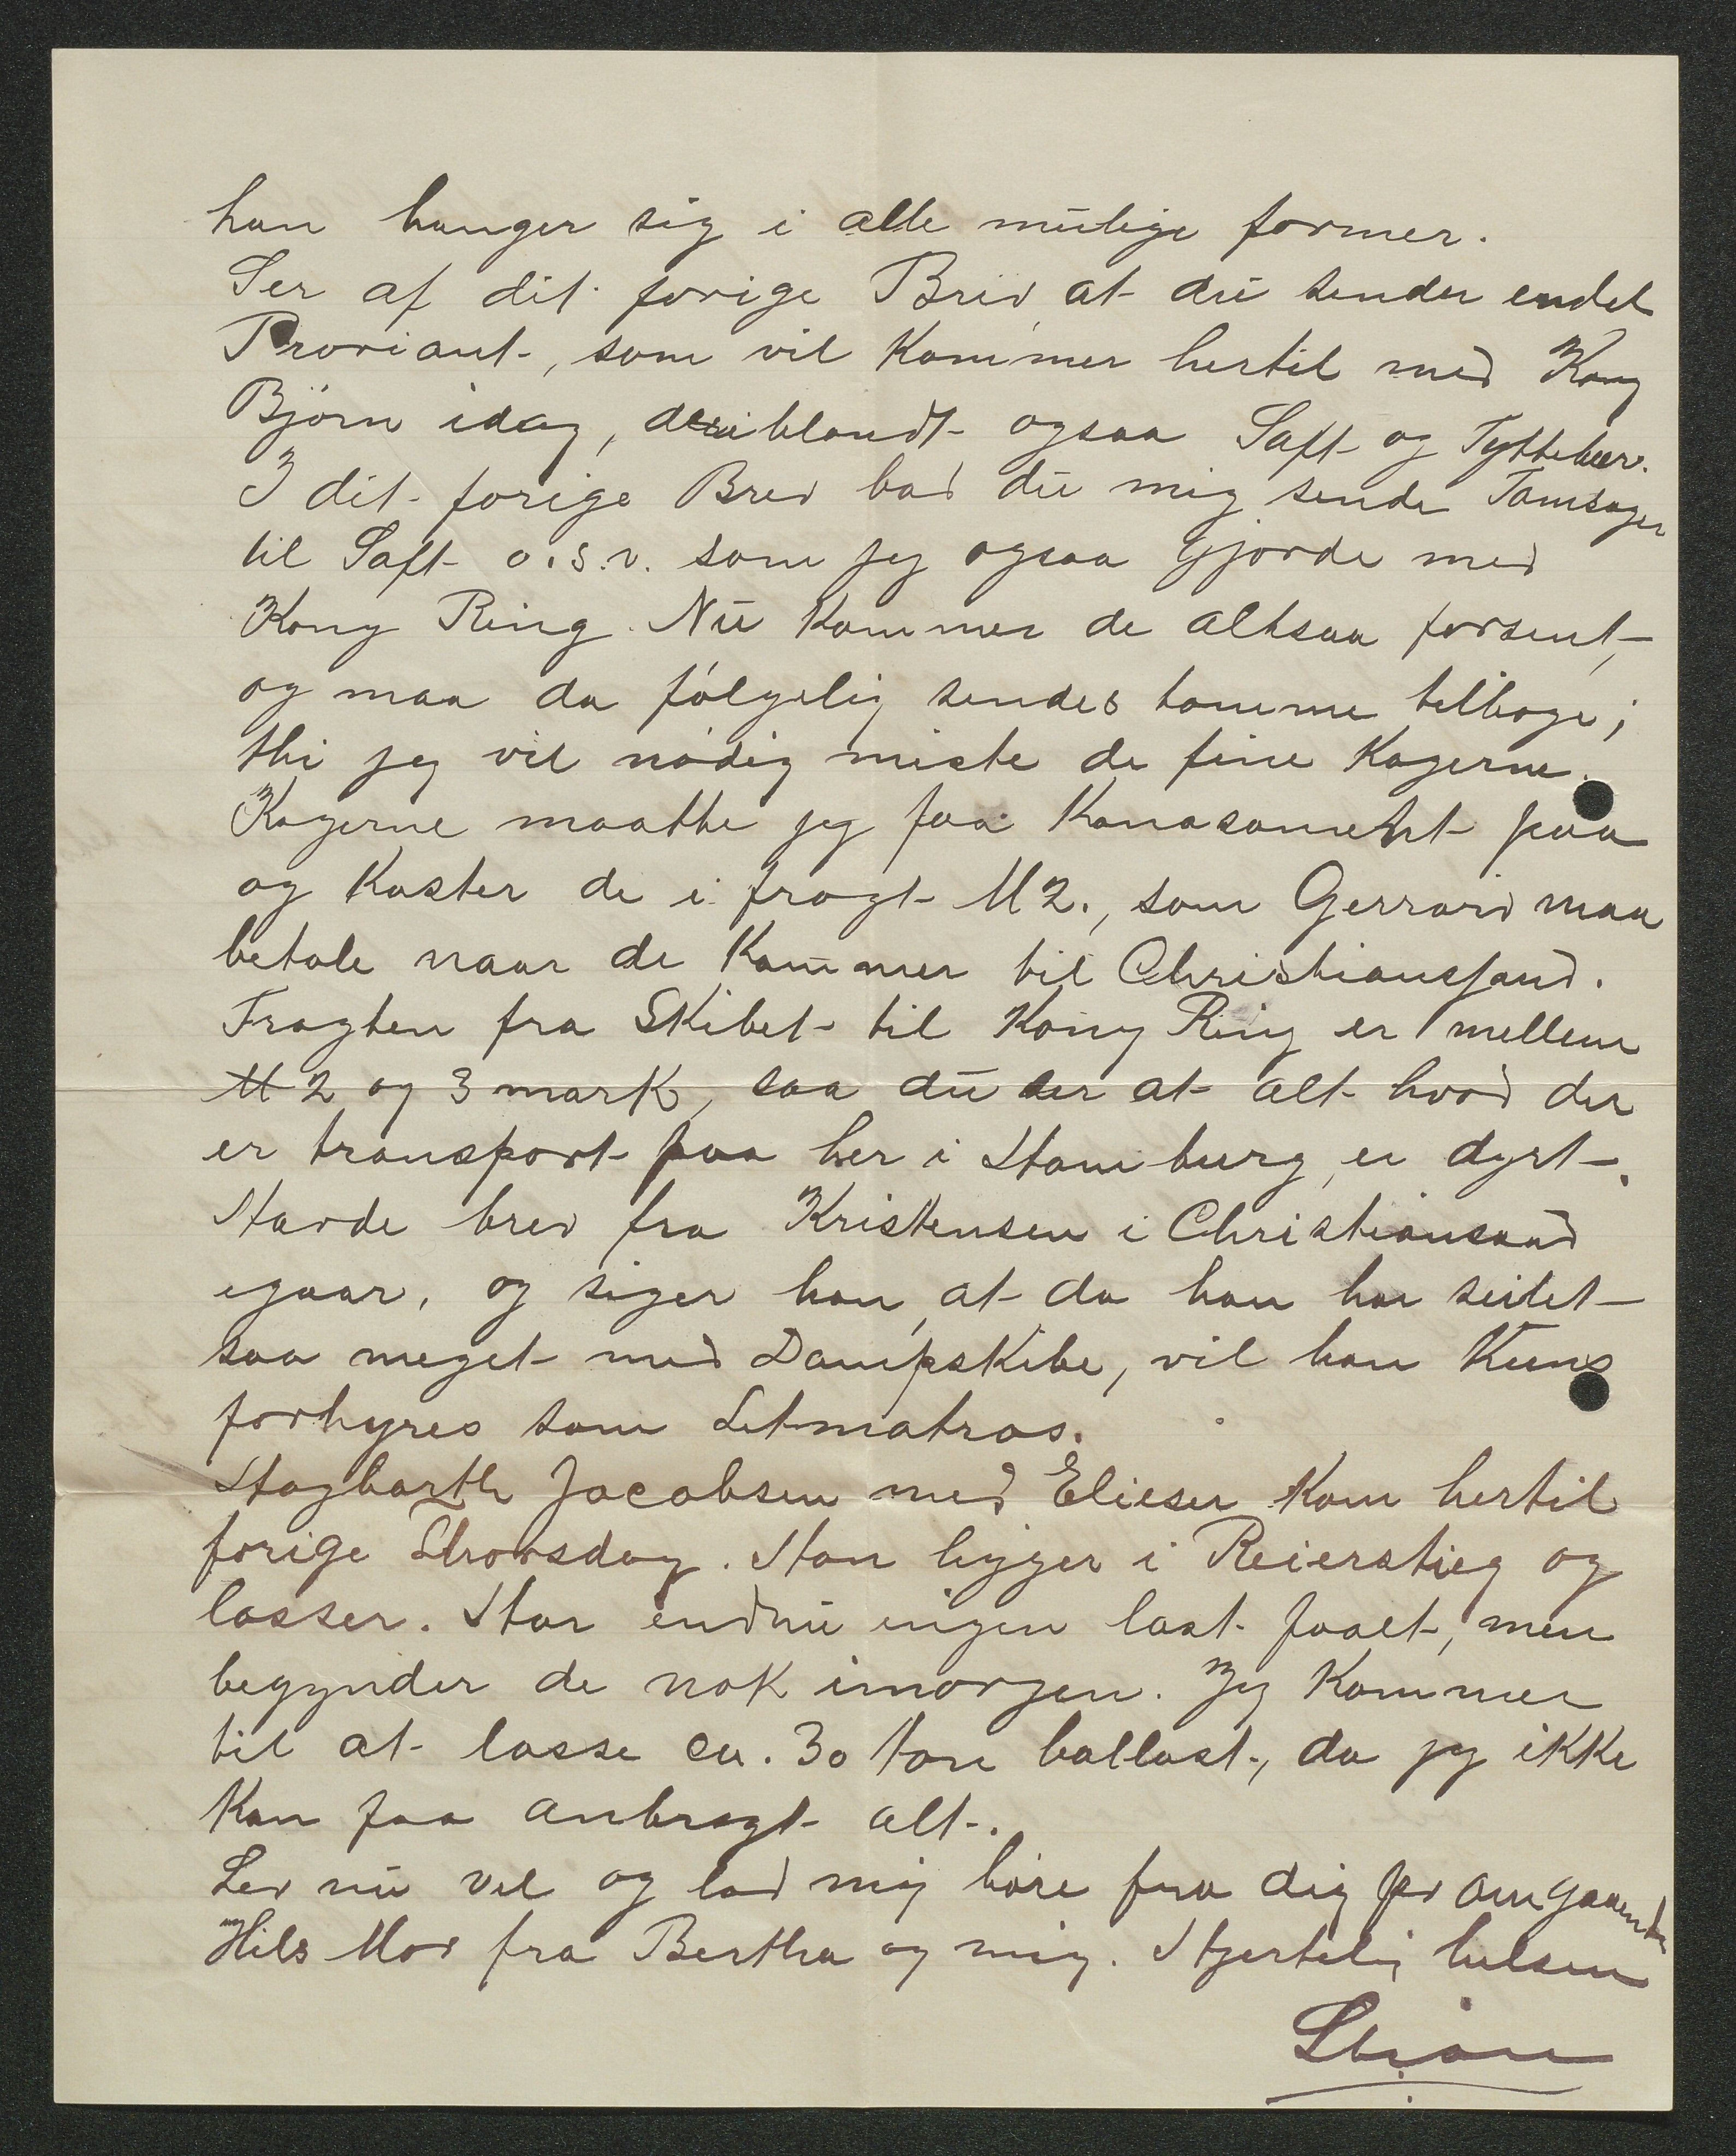 han hanger sig i alle mulige former.
Ser af dit forige Brev, at du sender endel
Proviant, som vil kommer hertil med Kong
Björn idag, deriblandt ogsaa Saft og Tyttebær.
I dit forige Brev bad du mig sende
til Saft o.s.v. som jeg ogsaa gjorde med
Kong Ring. Nu kommer de altsaa forsent,
og maa da følgelig sendes tomme tilbage;
thi jeg vil nødig miste de fine Kagerne.
Kagerne maatte jeg faa Konasament paa
og koster de i fragt M 2., som Gerrard maa
betale naar de kommer til Christiansand.
Fragten fra Skibet til Kong Ring er mellem
M 2 og 3 mark, saa du ser at alt hvad der
er transport paa her i Hamburg, er dyrt.
Havde brev fra Kristensen i Christiansand
igaar, og siger han, at da han har seilet
saa meget med Dampskibe, vil han kuns
forhyres som Letmatros.
Hagbarth Jacobsen med Elieser kom hertil
forige Thorsdag. Han ligger i Reierstieg og
losser. Har endnu ingen last faaet, men
begynder de nok imorgen. Jeg kommer
til at losse ca. 30 tons ballast, da jeg ikke
kan faa anbragt alt.
Lev nu vel og lad mig høre fra dig pr omgaaende
Hils Mor fra Bertha og mig. Hjertelig hilsen